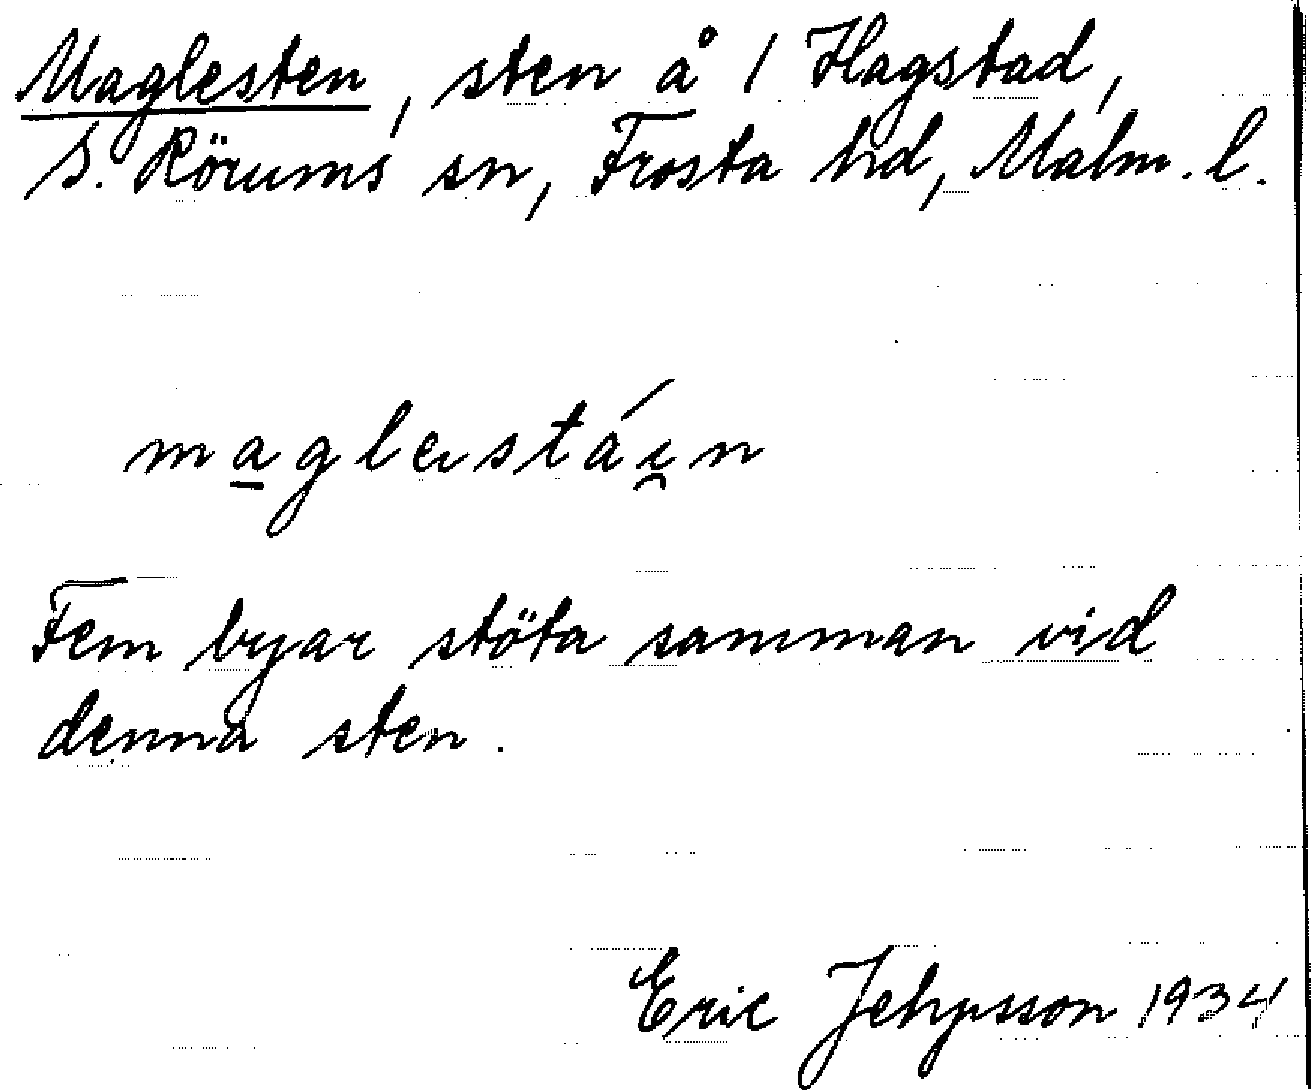 Maglesten, sten å 1 Hagstad,
S. Rörums sn, Frosta hd, Malm. l.
maglestái̯n
Fem byar stöta samman vid
denna sten.
Eric Jehpsson 1934